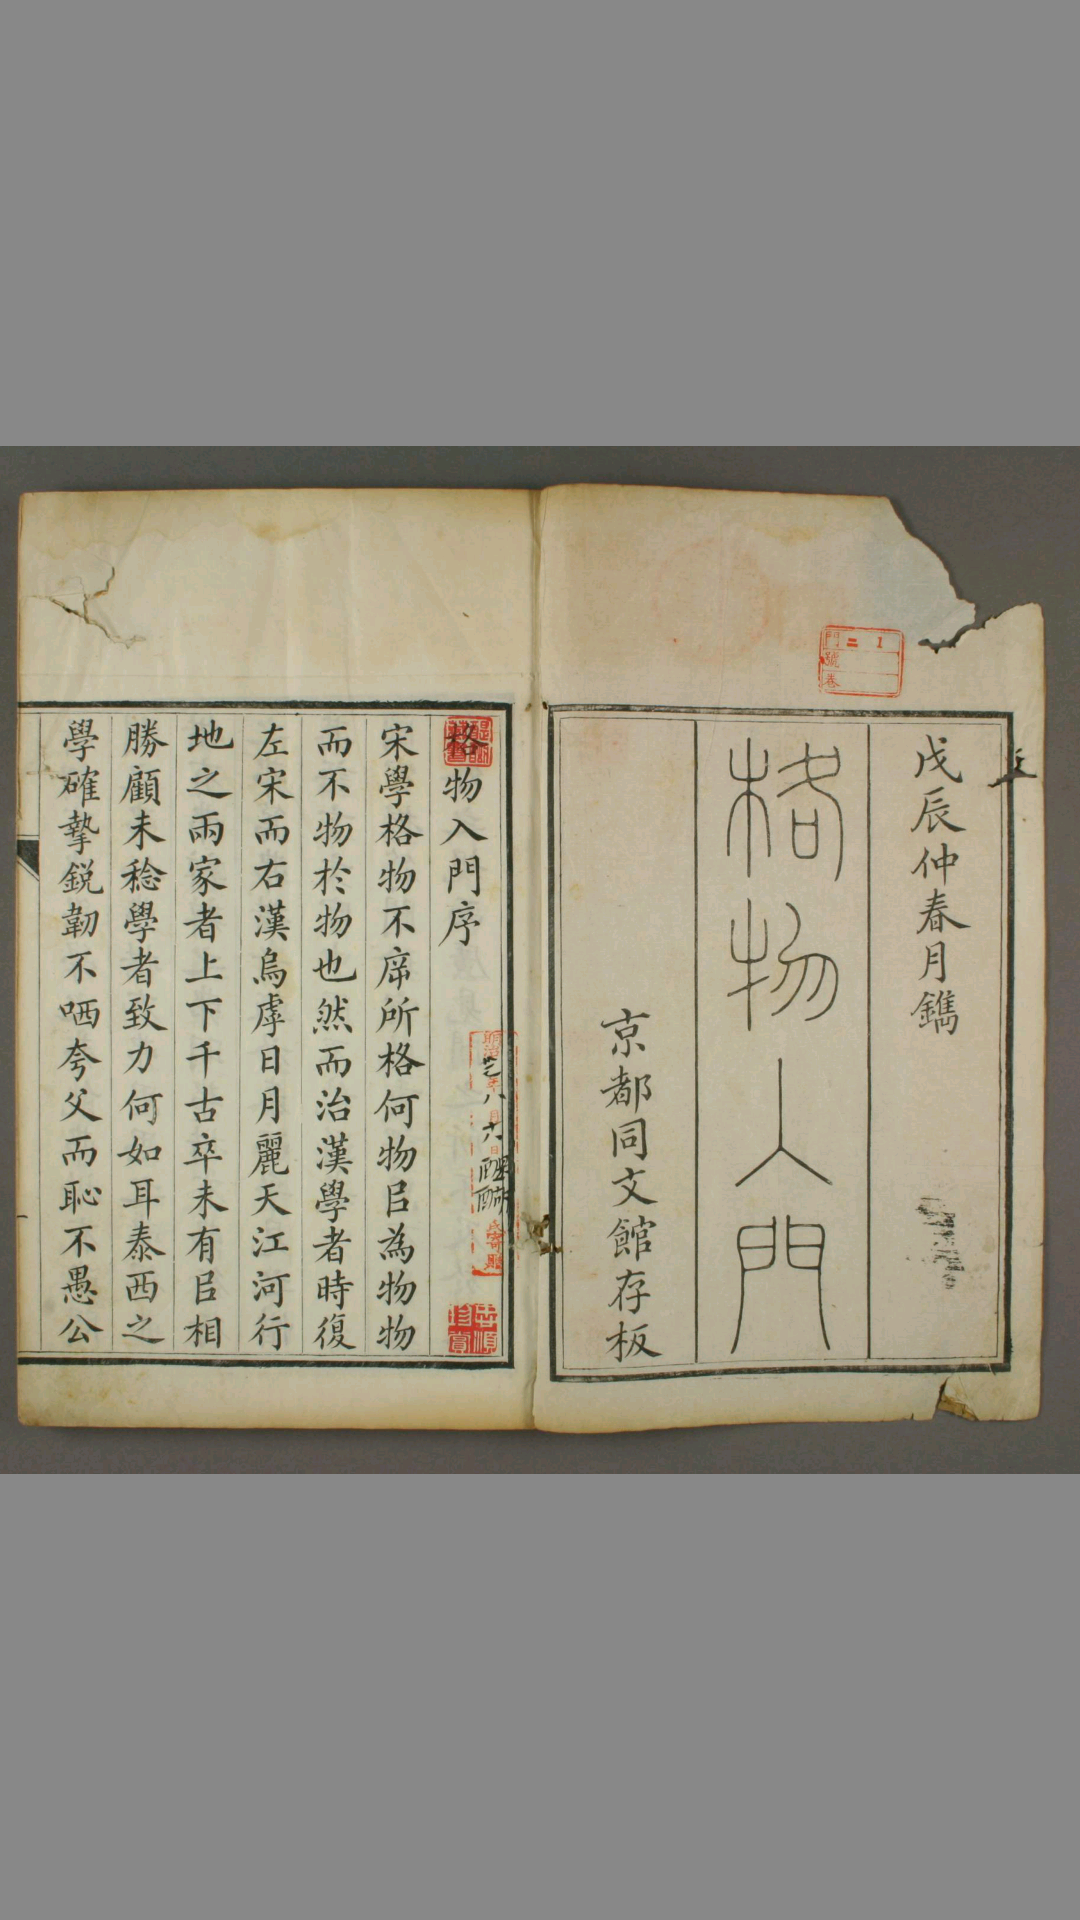 戊辰仲春月鐫
格物入門
京都同文館存板
門 二 1
號
卷
格物入門序
宋學格物不席所格何物㠯為物物
而不物於物也然而治漢學者時復
左宋而右漢烏虖日月麗天江河行
地之兩家者上下千古卒未有㠯相
勝顧未稔學者致力何如耳泰西之
學確摯銳韌不哂夸父而恥不愚公